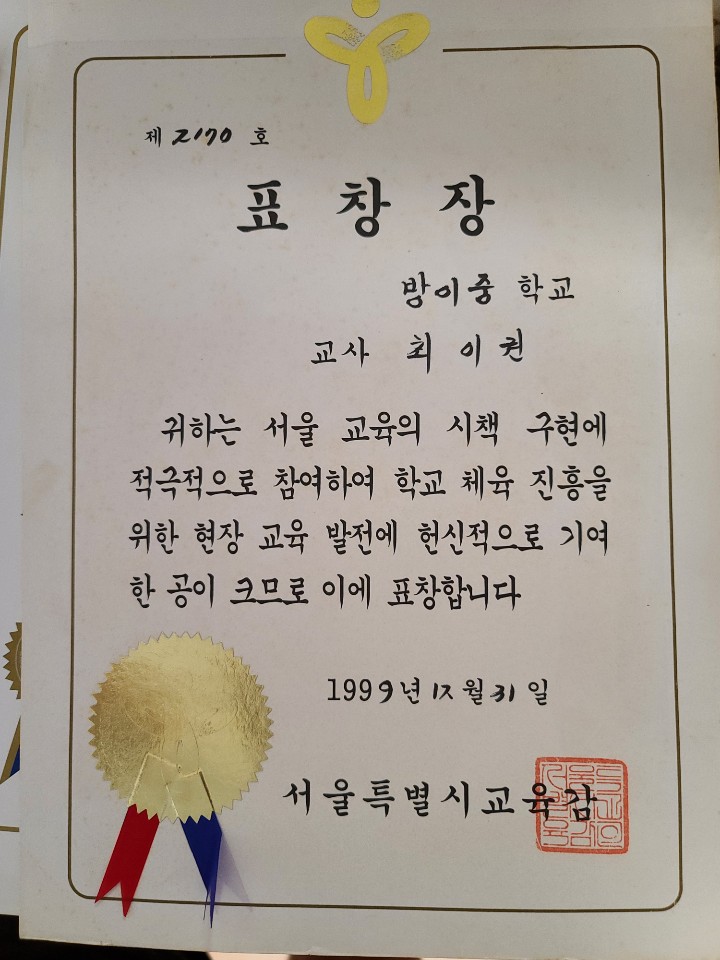 제 2170 호
표 창 장
방이중 학교
교사 최 이 권
귀하는 서울 교육의 시책 구현에
적극적으로 참여하여 학교 체육 진흥을
위한 현장 교육 발전에 헌신적으로 기여
한 공이 크므로 이에 표창합니다
1999년 12월 31일
서울특별시교육감